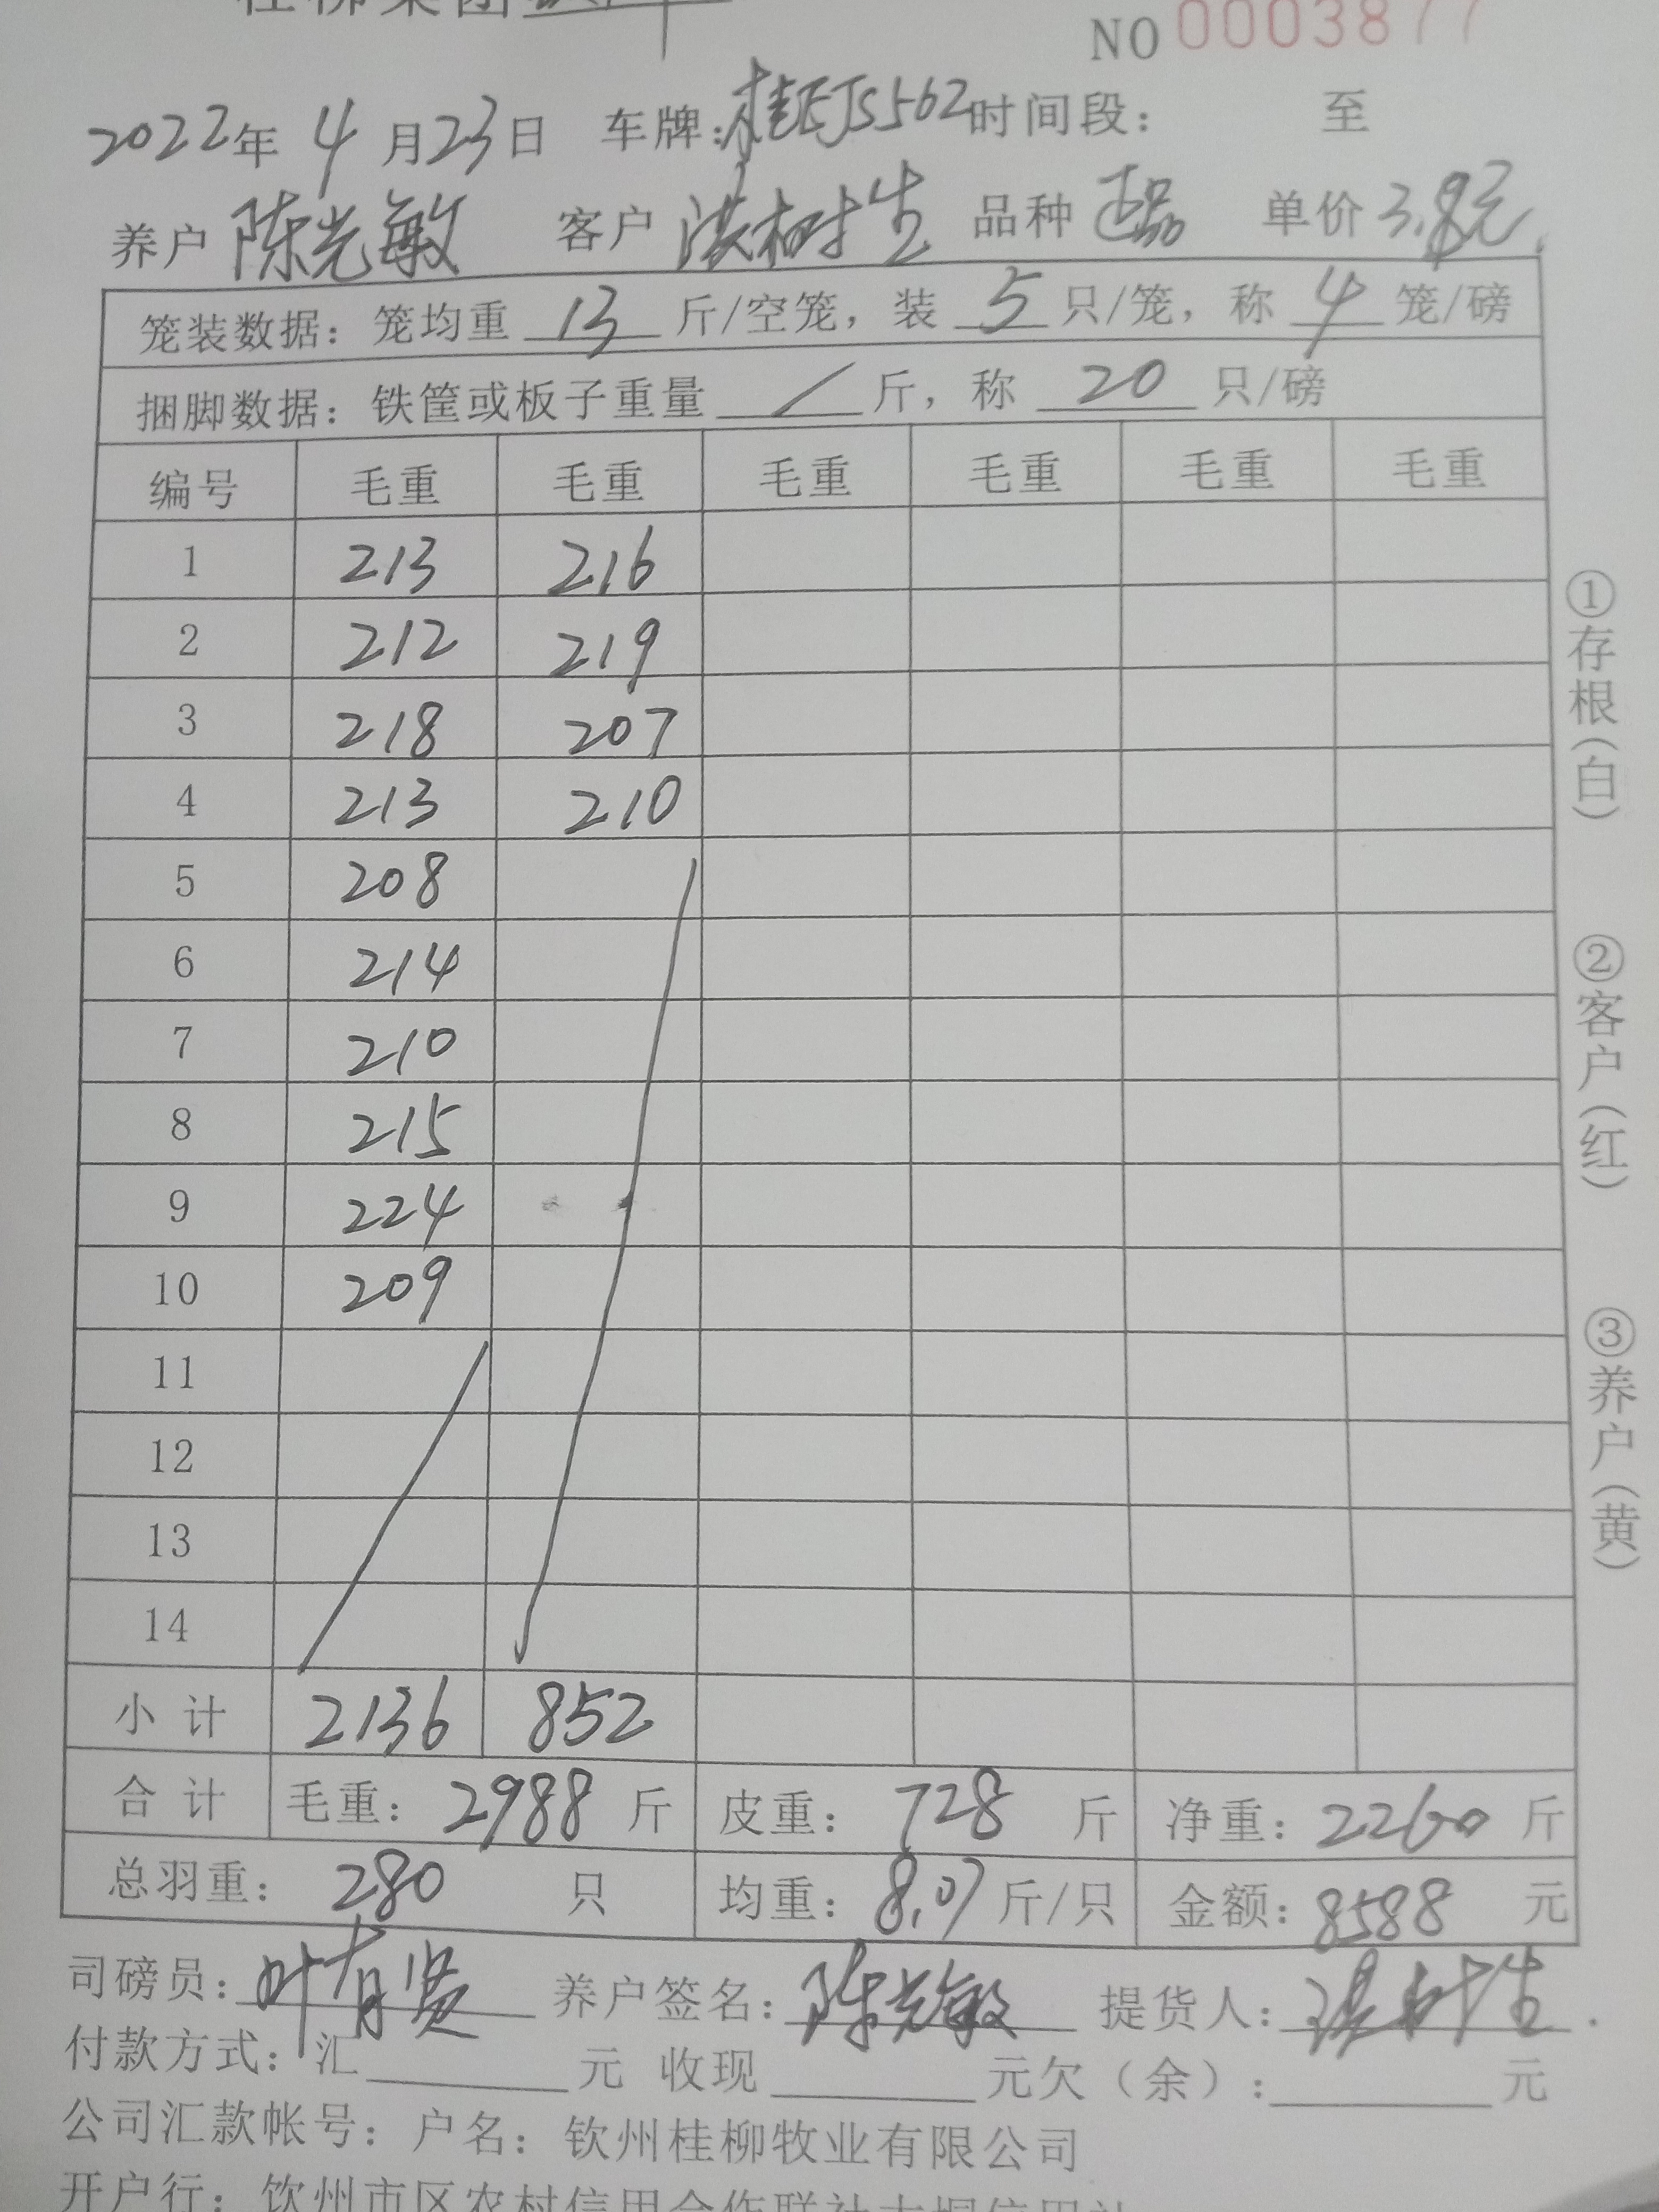 桂柳集团
NO 0003877
2022年 4 月23日 车牌:桂EJS562 时间段: 至
养户 陈光敏 客户 洪树生 品种 正品 单价 3.8元
笼装数据: 笼均重 13 斤/空笼, 装 5 只/笼, 称 4 笼/磅
捆脚数据: 铁筐或板子重量 / 斤, 称 20 只/磅
编号 毛重 毛重 毛重 毛重 毛重 毛重
1 213 216
2 212 219
3 218 207
4 213 210
5 208
6 214
7 210
8 215
9 224
10 209
11
12
13
14
小计 2136 852
合计 毛重: 2988 斤 皮重: 728 斤 净重: 2260 斤
总羽重: 280 只 均重: 8.07 斤/只 金额: 8588 元
司磅员: 叶有贤 养户签名: 陈光敏 提货人: 洪树生
付款方式: 汇 元 收现 元欠(余): 元
公司汇款帐号: 户名: 钦州桂柳牧业有限公司
开户行: 钦州市区农村信用合作联社
①存根(白)
②客户(红)
③养户(黄)